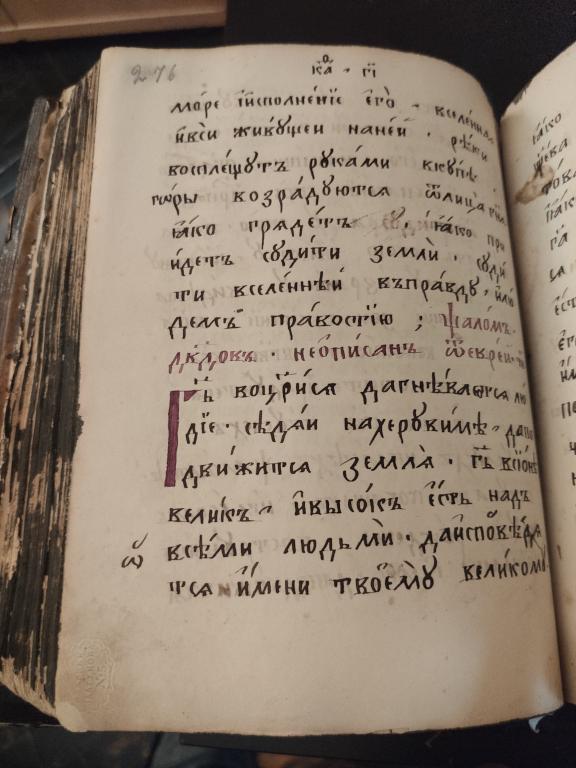 276
к҃а · г҃і
мо́ре и҆исполне́нїе е҆го̀ · вселе́ннаѧ
и҆всѝ живꙋщеи нане́й · рѣ́ки
восплещꙋтъ рꙋка́ми вкꙋ́пѣ ·
го́ры возра́дꙋются ѿлица̀ гн҃ѧ
ꙗ҆́ко гряде́тъ сꙋди́ти · ꙗ҆́ко прї
и́детъ сꙋди́ти землѝ · сꙋди́
ти вселе́ннѣй въпра́вдꙋ · и҆лю
демъ пра́востїю ; ѱало́мъ ·
дв҃довъ · неѡпи́санъ ѿе҆вре́й ·
Гд҇ь воцр҃и́ся дагнѣ́ваются лю́
дїе · сѣдѧ́й нахерꙋви́мѣ · дапо
дви́жится землѧ̀ · гд҇ь всїѡ́нѣ
вели́къ · и҆высо́къ е҆́сть надъ
всѣ́ми людьмѝ · даи҆сповѣ́дѧ
ѡ
тся и҆́мени твоемꙋ̀ вели́комꙋ